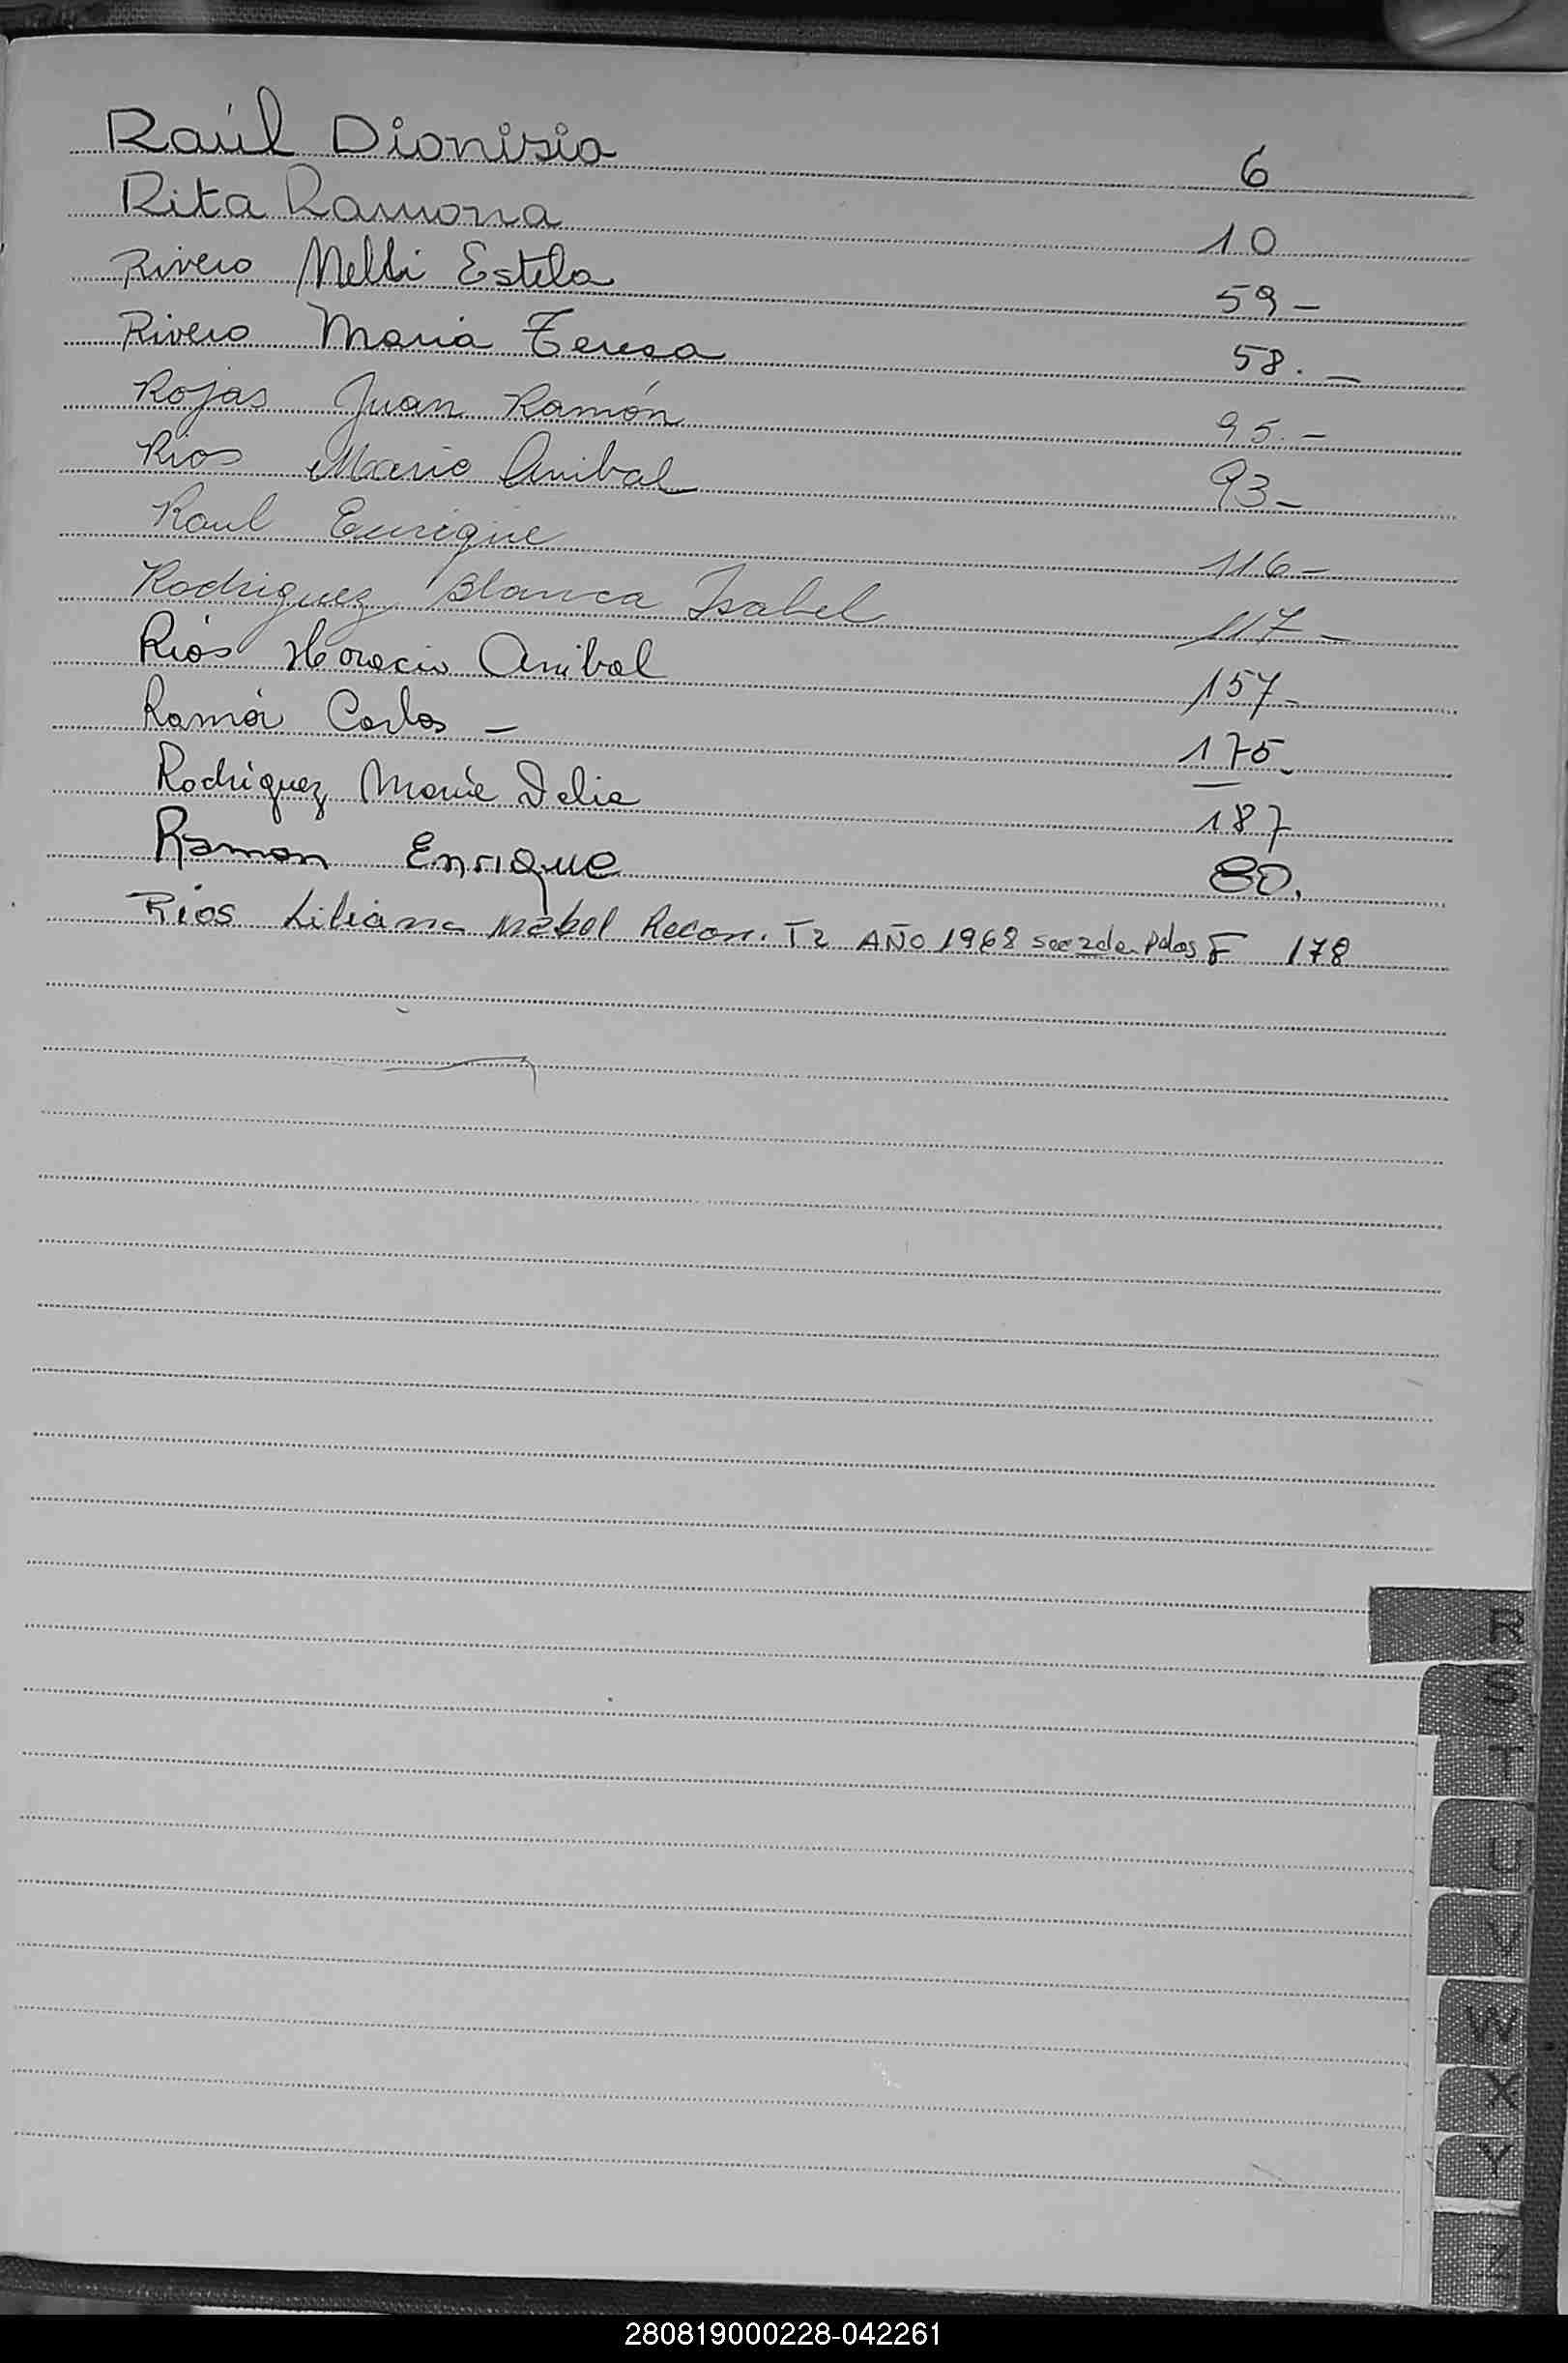 Raúl Dionisio 6
Rita Ramona 10
Rivero Nelli Estela 59-
Rivero Maria Teresa 58.-
Rojas Juan Ramón 95.-
Rios Mario Anibal 93-
Raul Enrique 116-
Rodriguez Blanca Isabel 117-
Riós Horacio Anibal 157-
Ramón Carlos - 175-
Rodriguez María Delia 187
Ramon Enrique 80.
Rios Liliana Mabel Recon. T2 AÑO 1968 sec 2da Pdas F 178
R
S
T
U
V
W
X
Y
Z
280819000228-042261